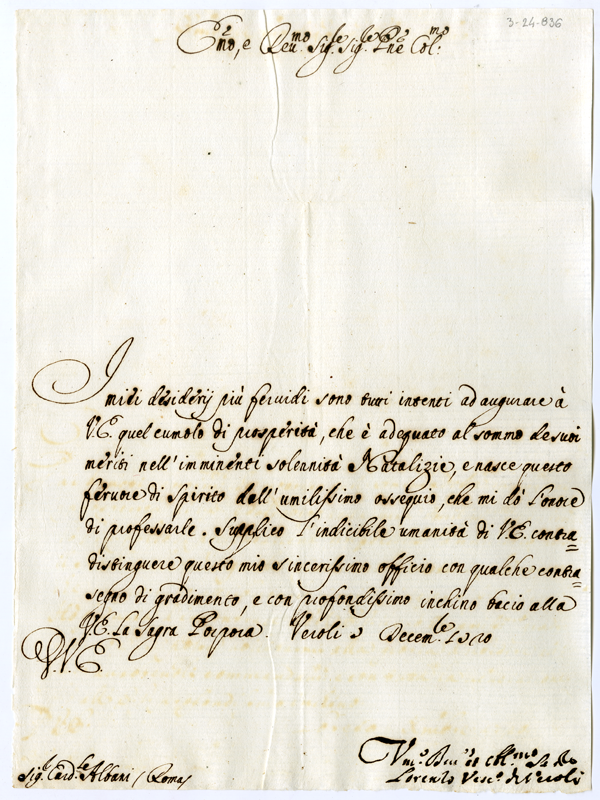 3-24-836
Emo, e Reu.mo Sig.re Sig.re Pne Col.mo
I miei desiderij più feruidi sono tutti intenti ad augurare à
V.E. quel cumolo di prosperità, che è adequato al sommo de suoi
meriti nell'imminenti solennità Natalizie, e nasce questo
feruore di spirito dall'umilissimo ossequio, che mi dò l'onore
di professarle. Supplico l'indicibile umanità di V.E. contra=
distinguere questo mio sincerissimo officio con qualche contra=
segno di gradimento, e con profondissimo inchino bacio alla
V.E. la Sagra Porpora. Veroli Decem.re
D.V.E.
Sig.r Card.le Albani / Roma /
Vm.o Deu.o et obl.mo
Lorenzo Vesc.o di Veroli